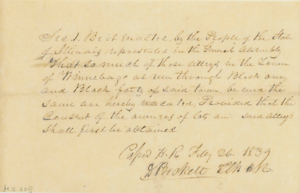 Sec 1. Be it enacted by the People of the State
of Illinois represented in the General Assembly
That so much of those alleys in the Town
of Winnebago as run through Block one
and Block forty of said town be and the
same are hereby vacated Provided that the
Consent of the owners of lots on said alleys
shall first be obtained
H. R. Feby 26. 1839